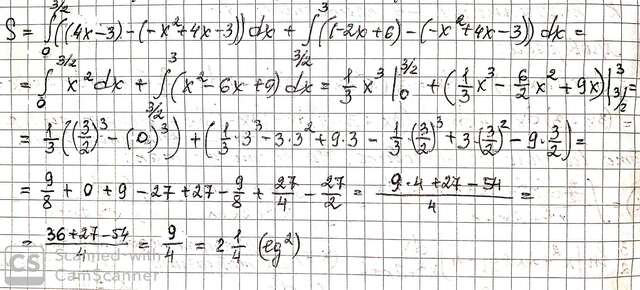 S = ∫₀^{3/2} ((4x-3) - (-x²+4x-3)) dx + ∫_{3/2}^3 ((-2x+6) - (-x²+4x-3)) dx =
= ∫₀^{3/2} x² dx + ∫_{3/2}^3 (x² - 6x + 9) dx = 1/3 x³ |₀^{3/2} + (1/3 x³ - 6/2 x² + 9x)|_{3/2}^3 =
= 1/3 ((3/2)³ - (0)³) + (1/3 · 3³ - 3·3² + 9·3 - 1/3 · (3/2)³ + 3·(3/2)² - 9·3/2) =
= 9/8 + 0 + 9 - 27 + 27 - 9/8 + 27/4 - 27/2 = (9·4 + 27 - 54)/4 =
= (36 + 27 - 54)/4 = 9/4 = 2 1/4 (eg²)
CS Scanned with
CamScanner